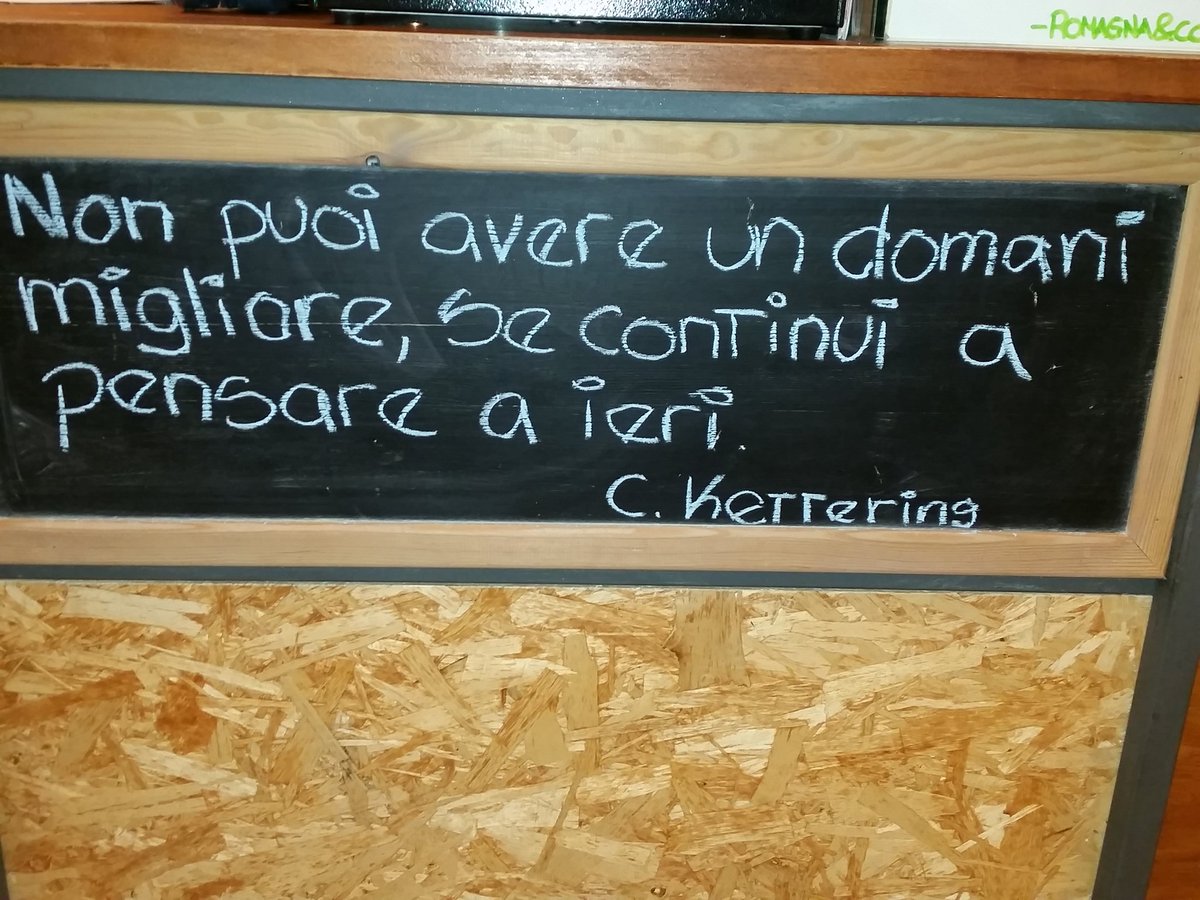 -ROMAGNA&CO
Non puoi avere un domani
migliore, se continui a
pensare a ieri.
C. Kettering